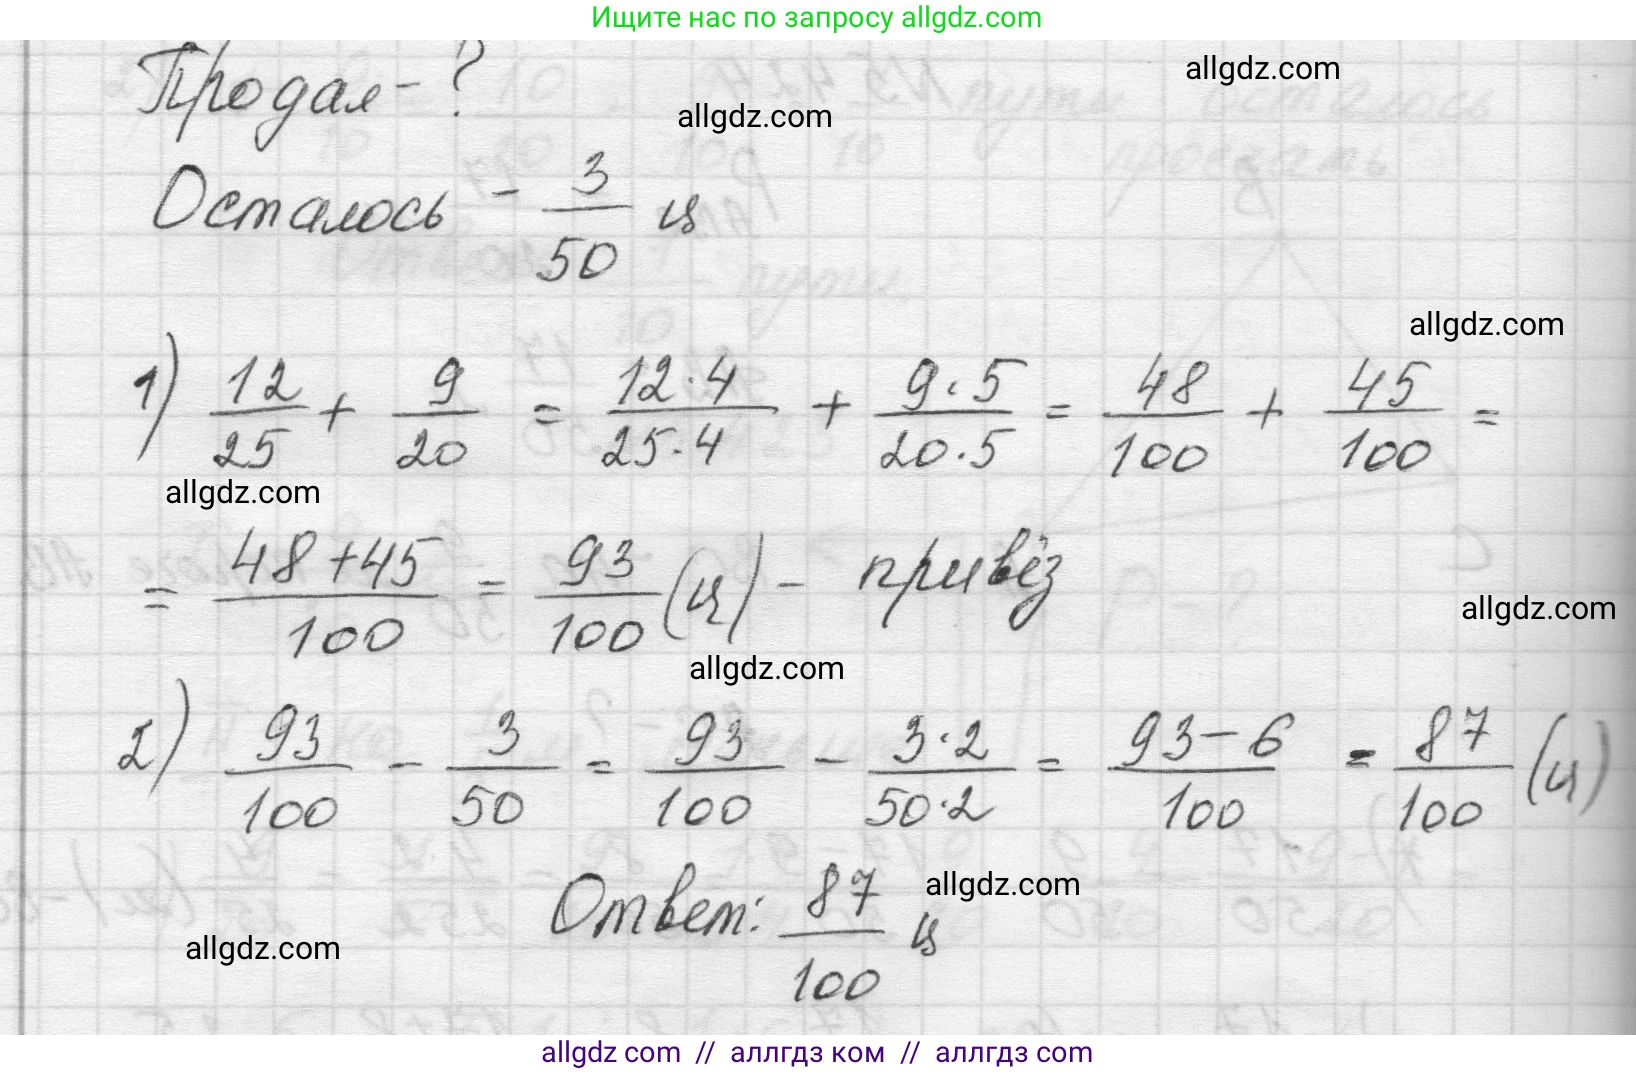 Ищите нас по запросу allgdz.com
Продал - ?
allgdz.com
allgdz.com
Осталось - 3/50 ц
allgdz.com
1) 12/25 + 9/20 = 12·4/25·4 + 9·5/20·5 = 48/100 + 45/100 =
allgdz.com
= 48+45/100 = 93/100 (ц) - привёз
allgdz.com
allgdz.com
2) 93/100 - 3/50 = 93/100 - 3·2/50·2 = 93-6/100 = 87/100 (ц)
Ответ: 87/100 ц
allgdz.com
allgdz.com
allgdz com // аллгдз ком // аллгдз com